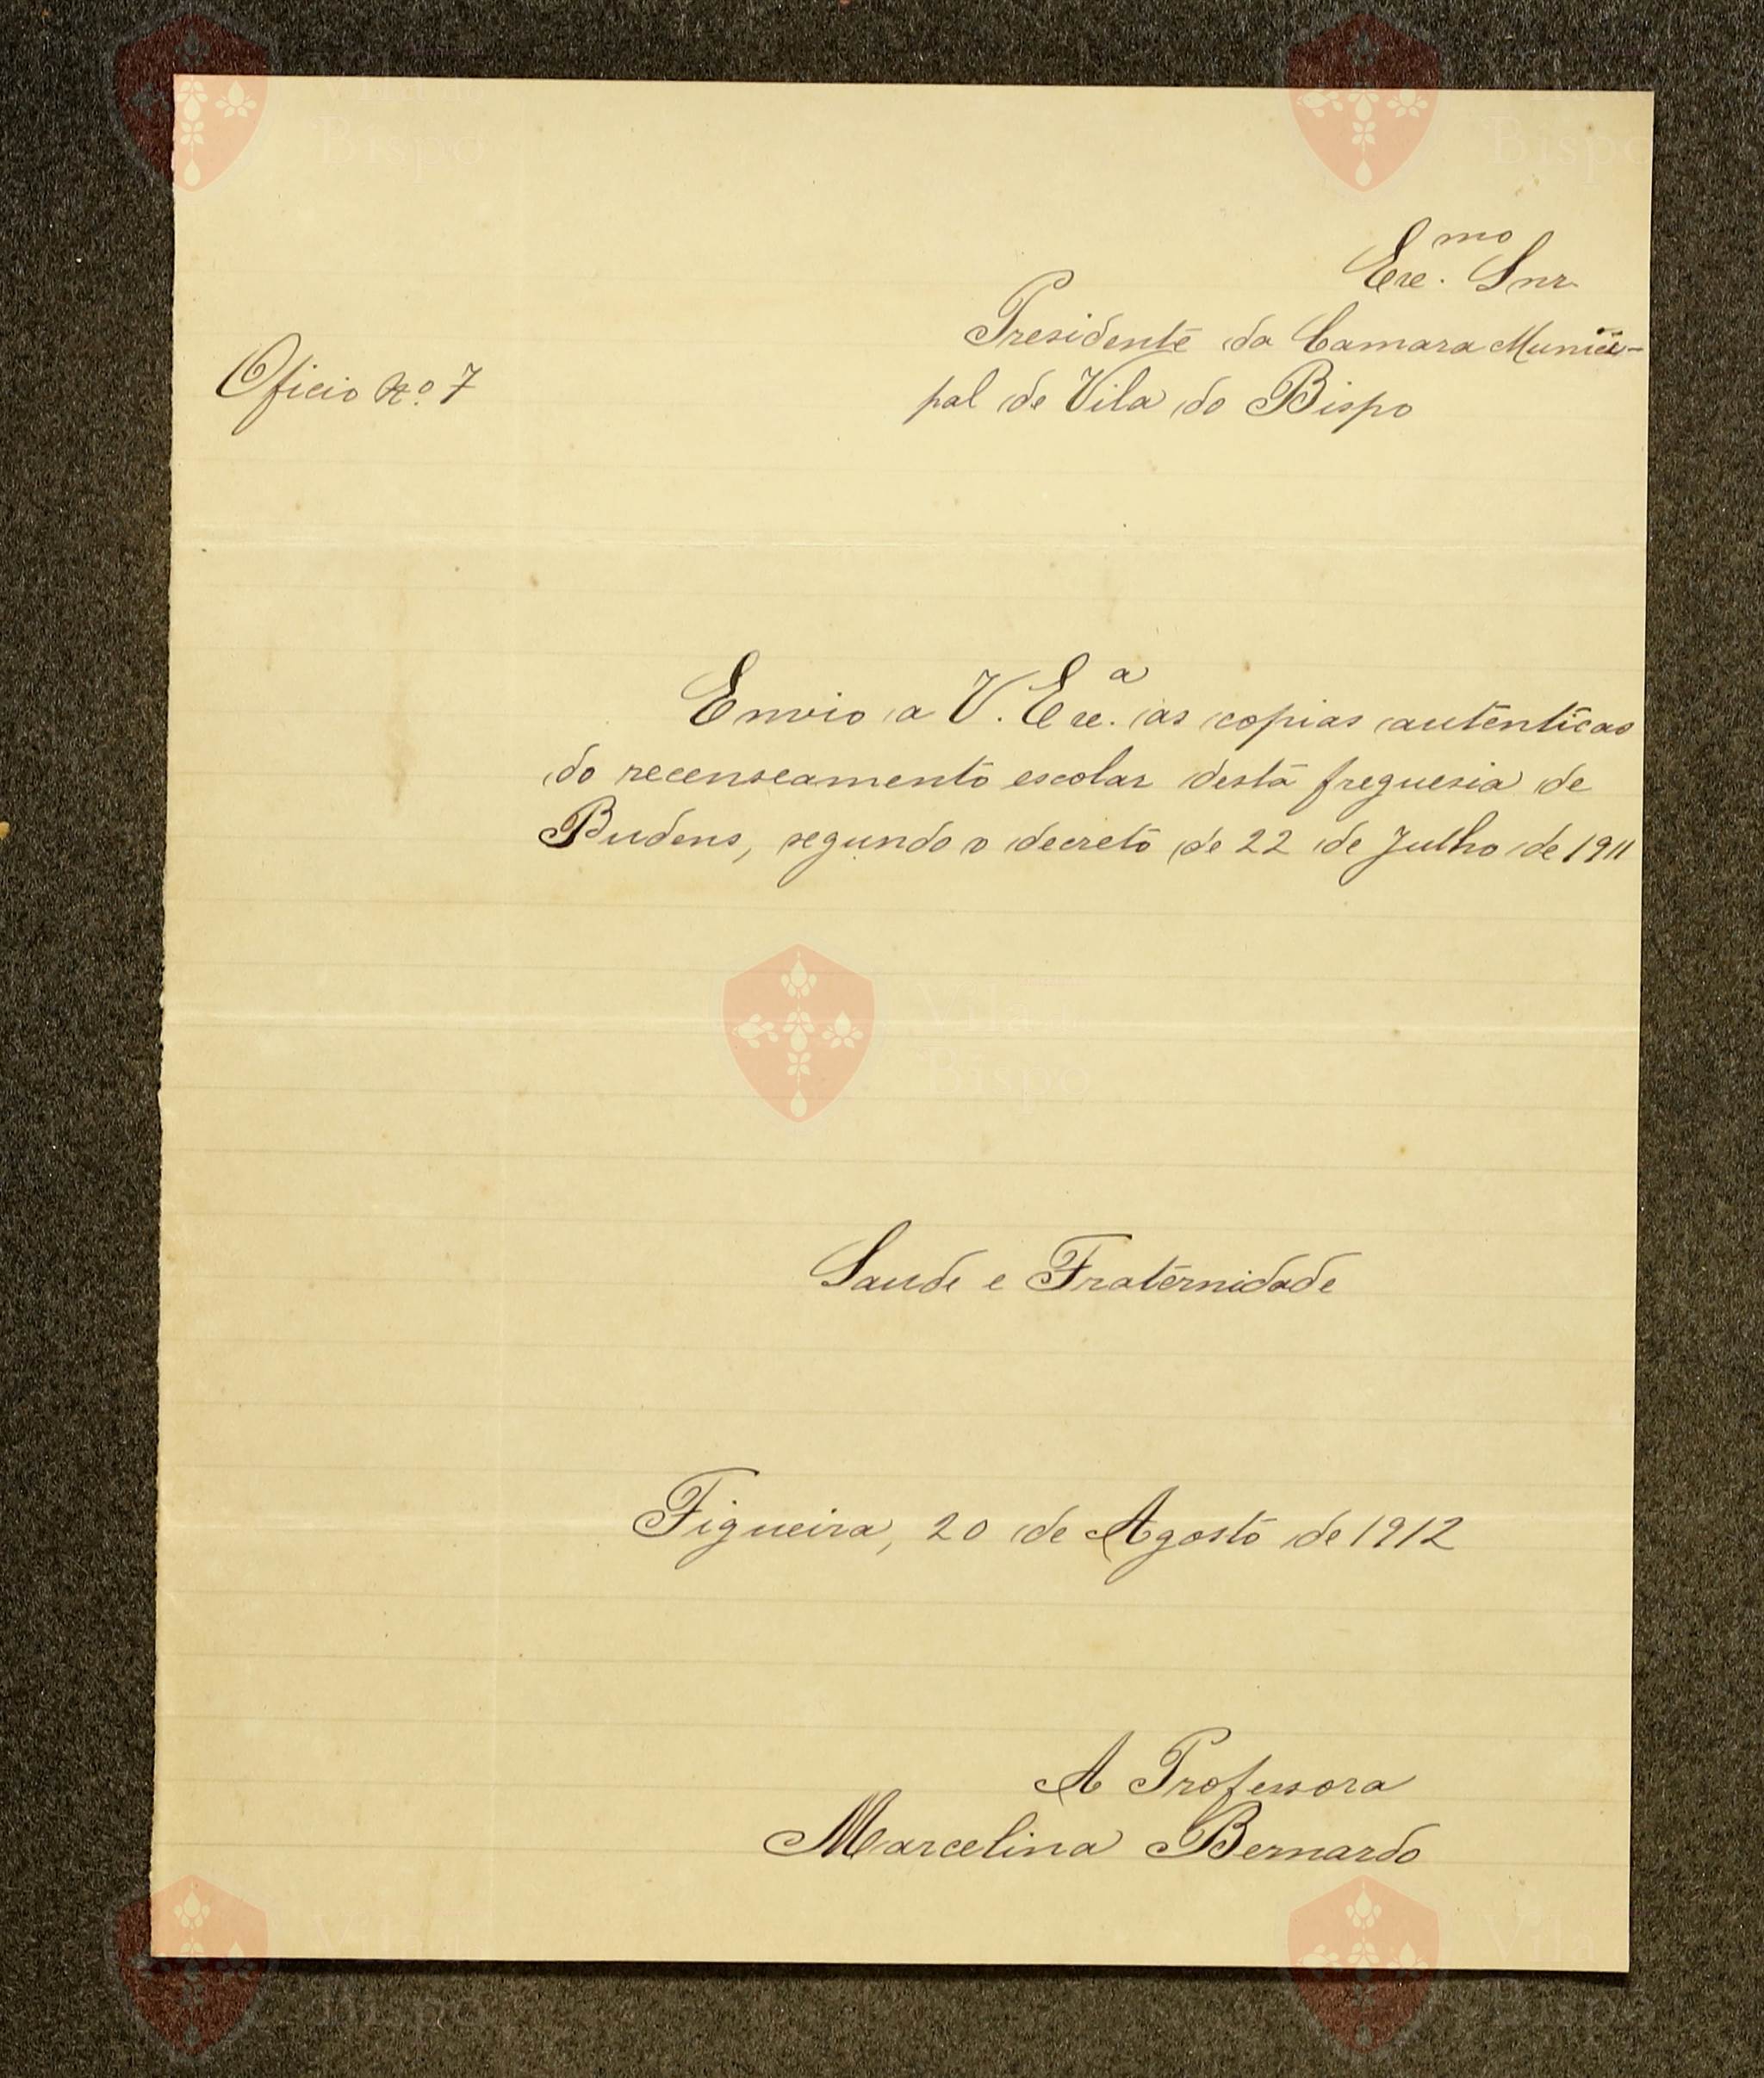 Exc.mo Snr.
Presidente da Camara Munici-
pal de Vila do Bispo
Oficio No. 7
Envio a V. Exc.a as copias autenticas
do recenseamento escolar desta freguesia de
Budens, segundo o decreto de 22 de Julho de 1911
Saude e Fraternidade
Figueira, 20 de Agosto de 1912
A Professora
Marcelina Bernardo
Vila do
Bispo